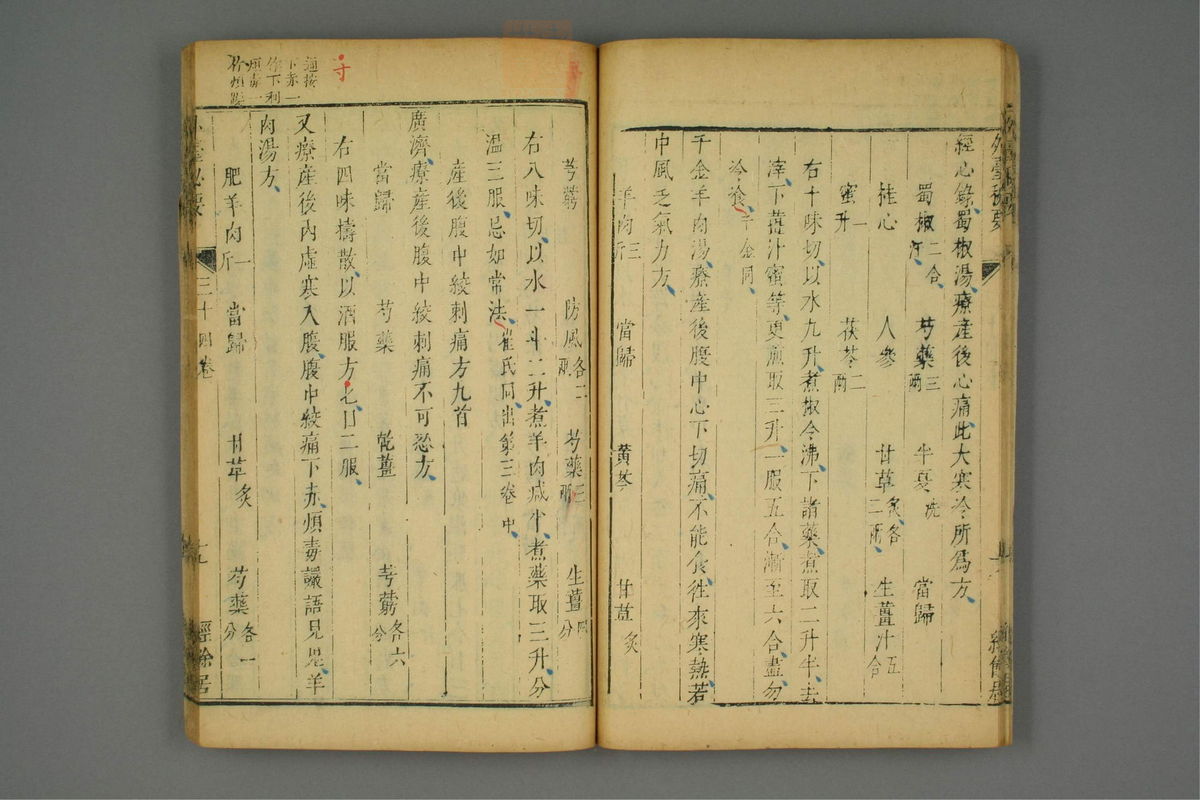 外臺秘要
經心錄蜀椒湯療産後心痛此大寒冷所爲方
蜀椒二合汗 芍藥三兩 半夏洗 當歸
桂心 人參 甘草炙各二兩 生薑汁五合
蜜一升 茯苓二兩
右十味切以水九升煮椒令沸下諸藥煮取二升半去
滓下薑汁蜜等更煎取三升一服五合漸至六合盡勿
冷飡千金同
千金羊肉湯療産後腹中心下切痛不能食徃來寒熱若
中風乏氣力方
羊肉三斤 當歸 黄芩 甘草炙
芎藭 防風各二兩 芍藥三兩 生薑四分
右八味切以水一斗二升煮羊肉减半煮藥取三升分
温三服忌如常法崔氏同出第三卷中
産後腹中絞刺痛方九首
廣濟療産後腹中絞刺痛不可忍方
當歸 芍藥 乾薑 芎藭各六分
右四味擣散以酒服方匕日二服
又療産後內虛寒入腹腹中絞痛下赤煩毒讝語見鬼羊
肉湯方
肥羊肉一斤 當歸 甘草炙 芍藥各一分
三十四卷
經餘居
寸
通按
下赤一
作下利
煩毒一
作煩躁